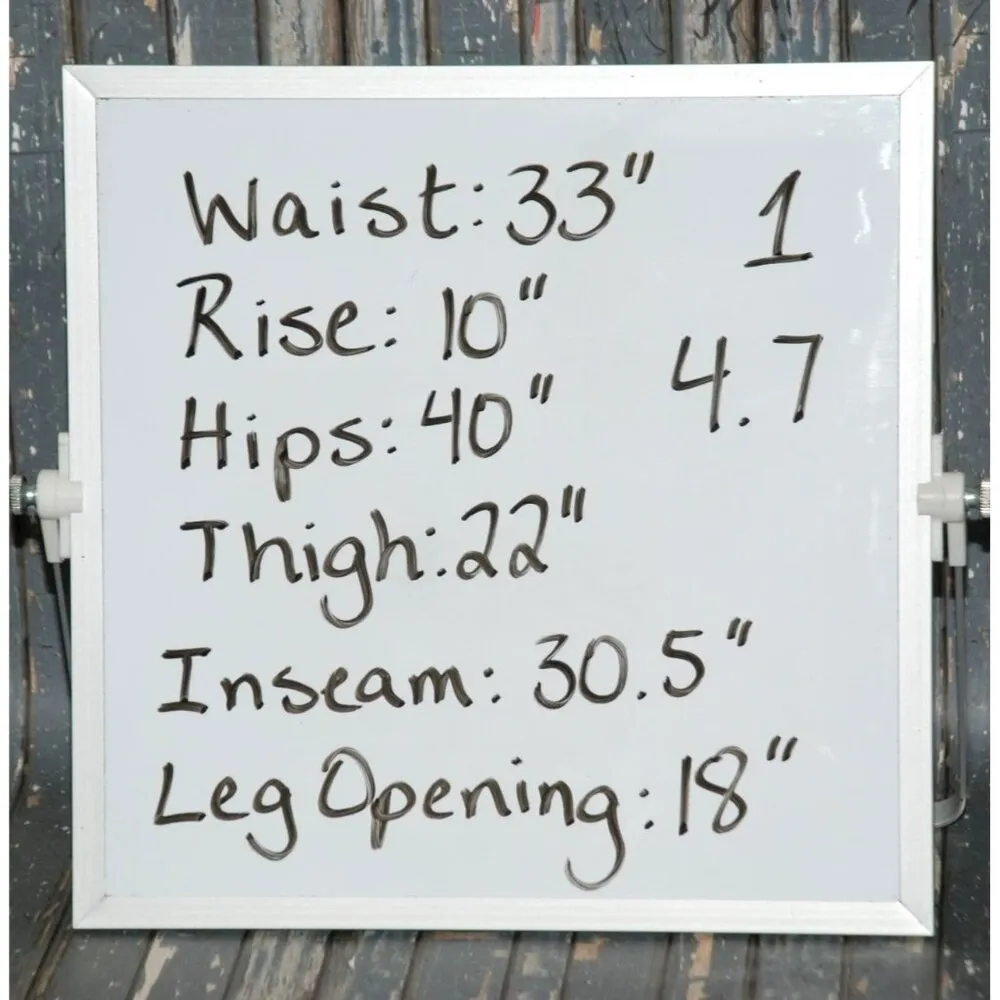 Waist: 33" 1
Rise: 10"
4.7
Hips: 40"
Thigh: 22"
Inseam: 30.5"
Leg Opening: 18"